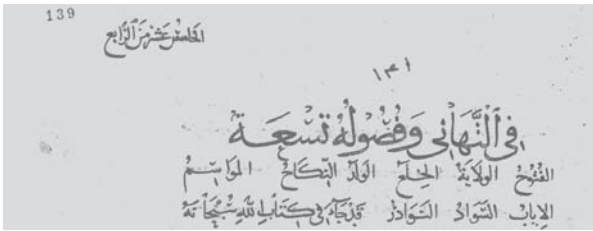 139
الخامس عشر من الرابع
١٣١
في التهاني وفصوله تسعة
الفتوح الولاية الخلع الولد النكاح المواسم
الإياب النوادر قد جاء في كتاب الله سبحانه